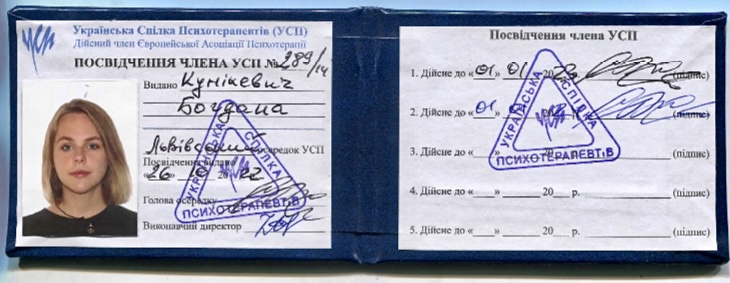 усп
Українська Спілка Психотерапевтів (УСП)
Дійсний член Європейської Асоціації Психотерапії
ПОСВІДЧЕННЯ ЧЛЕНА УСП № 289/14
Видано Кунікевич
Богдана
Львівський осередок УСП
Посвідчення видано
«26» 10 2022
Голова осередку
Виконавчий директор
УКРАЇНСЬКА СПІЛКА ПСИХОТЕРАПЕВТІВ
Посвідчення члена УСП
1. Дійсне до «01» 01 2023 (підпис)
2. Дійсне до «01» (підпис)
3. Дійсне до «___» 20 (підпис)
4. Дійсне до «___» ______ 20__ р. (підпис)
5. Дійсне до «___» ______ 20__ р. (підпис)
УКРАЇНСЬКА СПІЛКА ПСИХОТЕРАПЕВТІВ